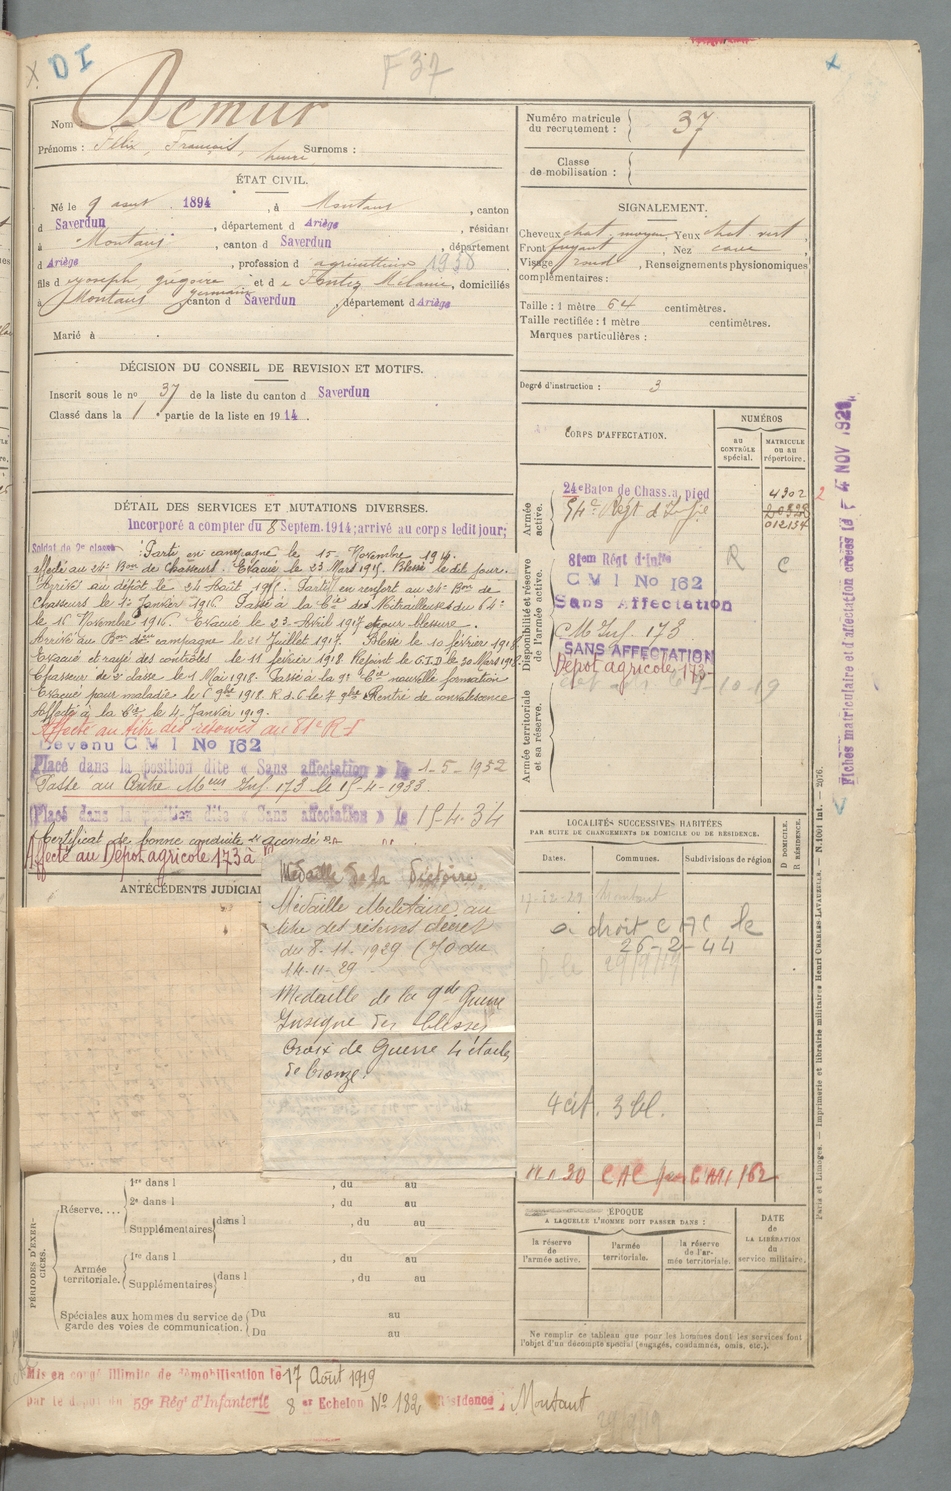 X DI
F 37
Nom : Demur
Prénoms : Félix, François, henri Surnoms :
ÉTAT CIVIL.
Né le 9 aout 1894, à Montaut, canton
d Saverdun, département d Ariège, résidant
à Montaut, canton d Saverdun, département
d Ariège, profession d agriculteur 1938
fils d joseph grégoire germain et d e Mélanie, domiciliés
à Montaut canton d Saverdun, département d Ariège
Marié à
DÉCISION DU CONSEIL DE REVISION ET MOTIFS.
Inscrit sous le no 37 de la liste du canton d Saverdun
Classé dans la 1 partie de la liste en 19 14.
DÉTAIL DES SERVICES ET MUTATIONS DIVERSES.
Incorporé a compter du 8 Septem. 1914; arrivé au corps ledit jour;
Soldat de 2e classe
Parti en campagne le 15 Novembre 1914.
affecté au 24e Bon de Chasseurs. Evacué le 23 Mars 1915. Blessé le dit jour.
Arrivé au dépôt le 24 Août 1915. Parti en renfort au 24e Bon de
Chasseurs le 1er Janvier 1916. Passé à la Cie des Mitrailleuses du 64e
le 16 Novembre 1916. Evacué le 23 Avril 1917 blessure.
Arrivé au Bon campagne le 21 Juillet 1917. Blessé le 10 février 1918
Evacué et rayé des contrôles le 11 février 1918. Rejoint le C.I.D. le 30 Mars 1918
Chasseur de 2e classe le 1 Mai 1918. Passé à la 9e Cie nouvelle formation
Evacué pour maladie le 6 9bre 1918. R. d. C. le 7 9bre Rentré de convalescence
Affecté à la Cie le 4 Janvier 1919.
Affecté au titre des réserves au 81e R I
Devenu C M I No 162
Placé dans la position dite « Sans affectation » le 1-5-1932
Passé au Centre Meurs Inf. 173 le 15-4-1933.
Placé dans la position dite « Sans affectation » le 15.4.34
Certificat de bonne conduite accordé
Affecté au Dépot agricole 173 à
ANTÉCÉDENTS JUDICIAI
Médaille de la Victoire
Médaille Militaire au
titre des réserves décret
du 8-11-1929 (JO du
14-11-29
Médaille de la gde Guerre
Insigne des blessés
Croix de Guerre 4 étoiles
de bronze.
PÉRIODES D'EXERCICES.
Réserve....
1re dans l , du au
2e dans l , du au
Supplémentaires dans l , du au
Armée territoriale.
1re dans l , du au
Supplémentaires dans l , du au
Spéciales aux hommes du service de garde des voies de communication.
Du au
Du au
Mis en congé illimité de démobilisation le 17 Août 1919
par le dépot du 59e Rég d'Infanterie 8 er Echelon No 182 Résidence Montaut
Numéro matricule du recrutement : 37
Classe de mobilisation :
SIGNALEMENT.
Cheveux chat. moyen, Yeux chat vert,
Front fuyant, Nez cave,
Visage rond, Renseignements physionomiques
complémentaires :
Taille : 1 mètre 64 centimètres.
Taille rectifiée : 1 mètre centimètres.
Marques particulières :
Degré d'instruction : 3
CORPS D'AFFECTATION.
NUMÉROS
au CONTRÔLE spécial.
MATRICULE ou au répertoire.
Armée active.
24e Baton de Chass.à pied 4302
Régt d'Inf.ie
012134
2
Disponibilité et réserve de l'armée active.
81em Régt d'Infie R C
C M I No 162
Sans Affectation
C M Inf. 173
SANS AFFECTATION
Dépot agricole 173
Armée territoriale et sa réserve.
-10-19
LOCALITÉS SUCCESSIVES HABITÉES
PAR SUITE DE CHANGEMENTS DE DOMICILE OU DE RÉSIDENCE.
Dates. Communes. Subdivisions de région
D DOMICILE.
R RÉSIDENCE.
Montaut
a droit C A C le
26-2-44
D le 29/9/19
4 cit. 3 bl.
30 C A C par CMI 162
ÉPOQUE
A LAQUELLE L'HOMME DOIT PASSER DANS :
la réserve de l'armée active.
l'armée territoriale.
la réserve de l'armée territoriale.
DATE de LA LIBÉRATION du service militaire.
Ne remplir ce tableau que pour les hommes dont les services font
l'objet d'un décompte spécial (engagés, condamnés, omis, etc.).
Fiches matriculaire et d'affectation créées le 4 NOV 1921
Paris et Limoges. — Imprimerie et librairie militaires Henri CHARLES-LAVAUZELLE. — N. 1001 Int. — 2076.